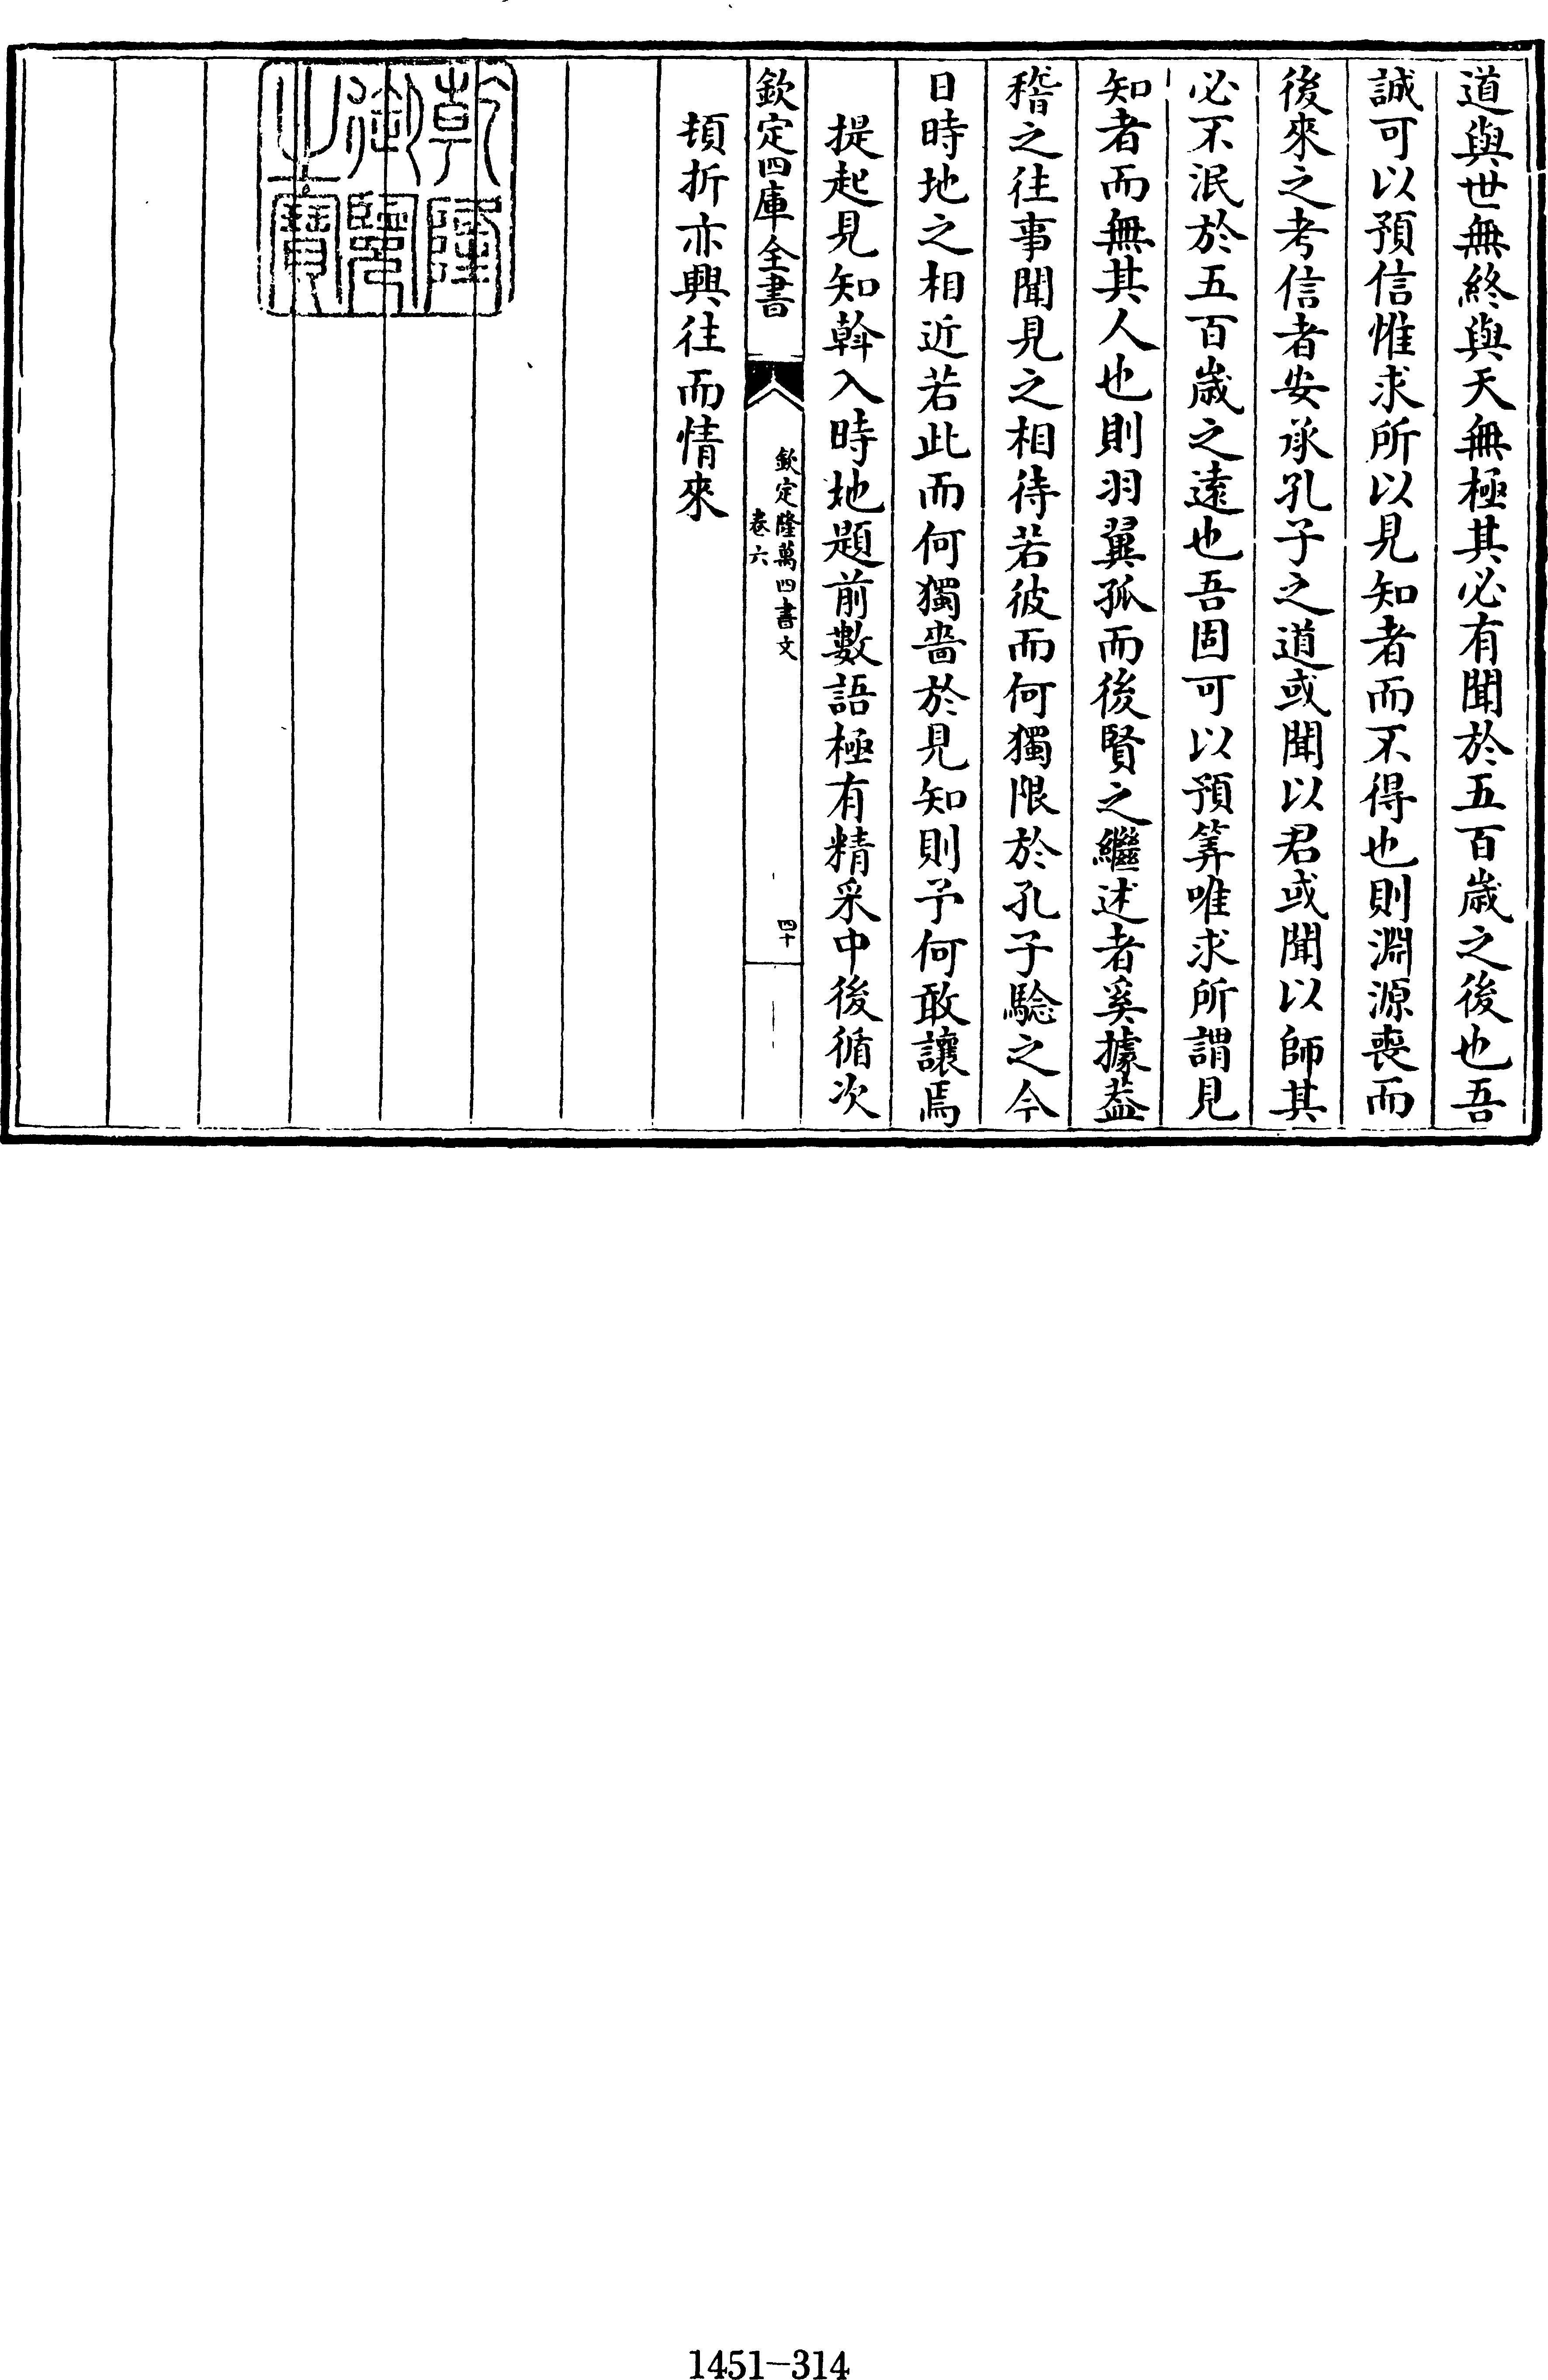 道與世無終與天無極其必有聞於五百歲之後也吾
誠可以預信惟求所以見知者而不得也則淵源喪而
後來之考信者安承孔子之道或聞以君或聞以師其
必不泯於五百歲之遠也吾固可以預筭唯求所謂見
知者而無其人也則羽翼孤而後賢之繼述者奚據葢
稽之往事聞見之相待若彼而何獨限於孔子騐之今
日時地之相近若此而何獨嗇於見知則予何敢讓焉
提起見知斡入時地題前數語極有精采中後循次
欽定四庫全書
欽定隆萬四書文
卷六
四十
頓折亦興往而情來
乾隆
御覽
之寶
1451-314